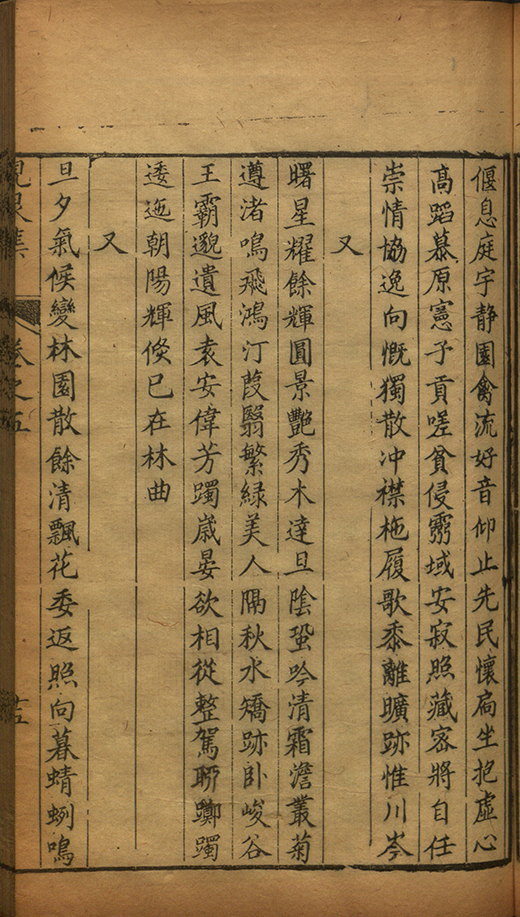 偃息庭宇静園禽流好音仰止先民懷扃坐抱虛心
高蹈慕原憲子貢嗟貧侵靈域安寂照藏密將自任
崇情協逸向慨獨散沖襟柂履歌黍離曠跡惟川岑
又
曙星耀餘輝圓景艷秀木達旦陰蛩吟清霜澹叢菊
遵渚鳴飛鴻汀葭翳繁緑美人隔秋水矯跡卧峻谷
王霸邈遺風袁安偉芳躅歲晏欲相從整駕聊躑躅
逶迤朝陽輝倏已在林曲
又
旦夕氣候變林園散餘清飄花委返照向暮蜻蛚鳴
卷之五